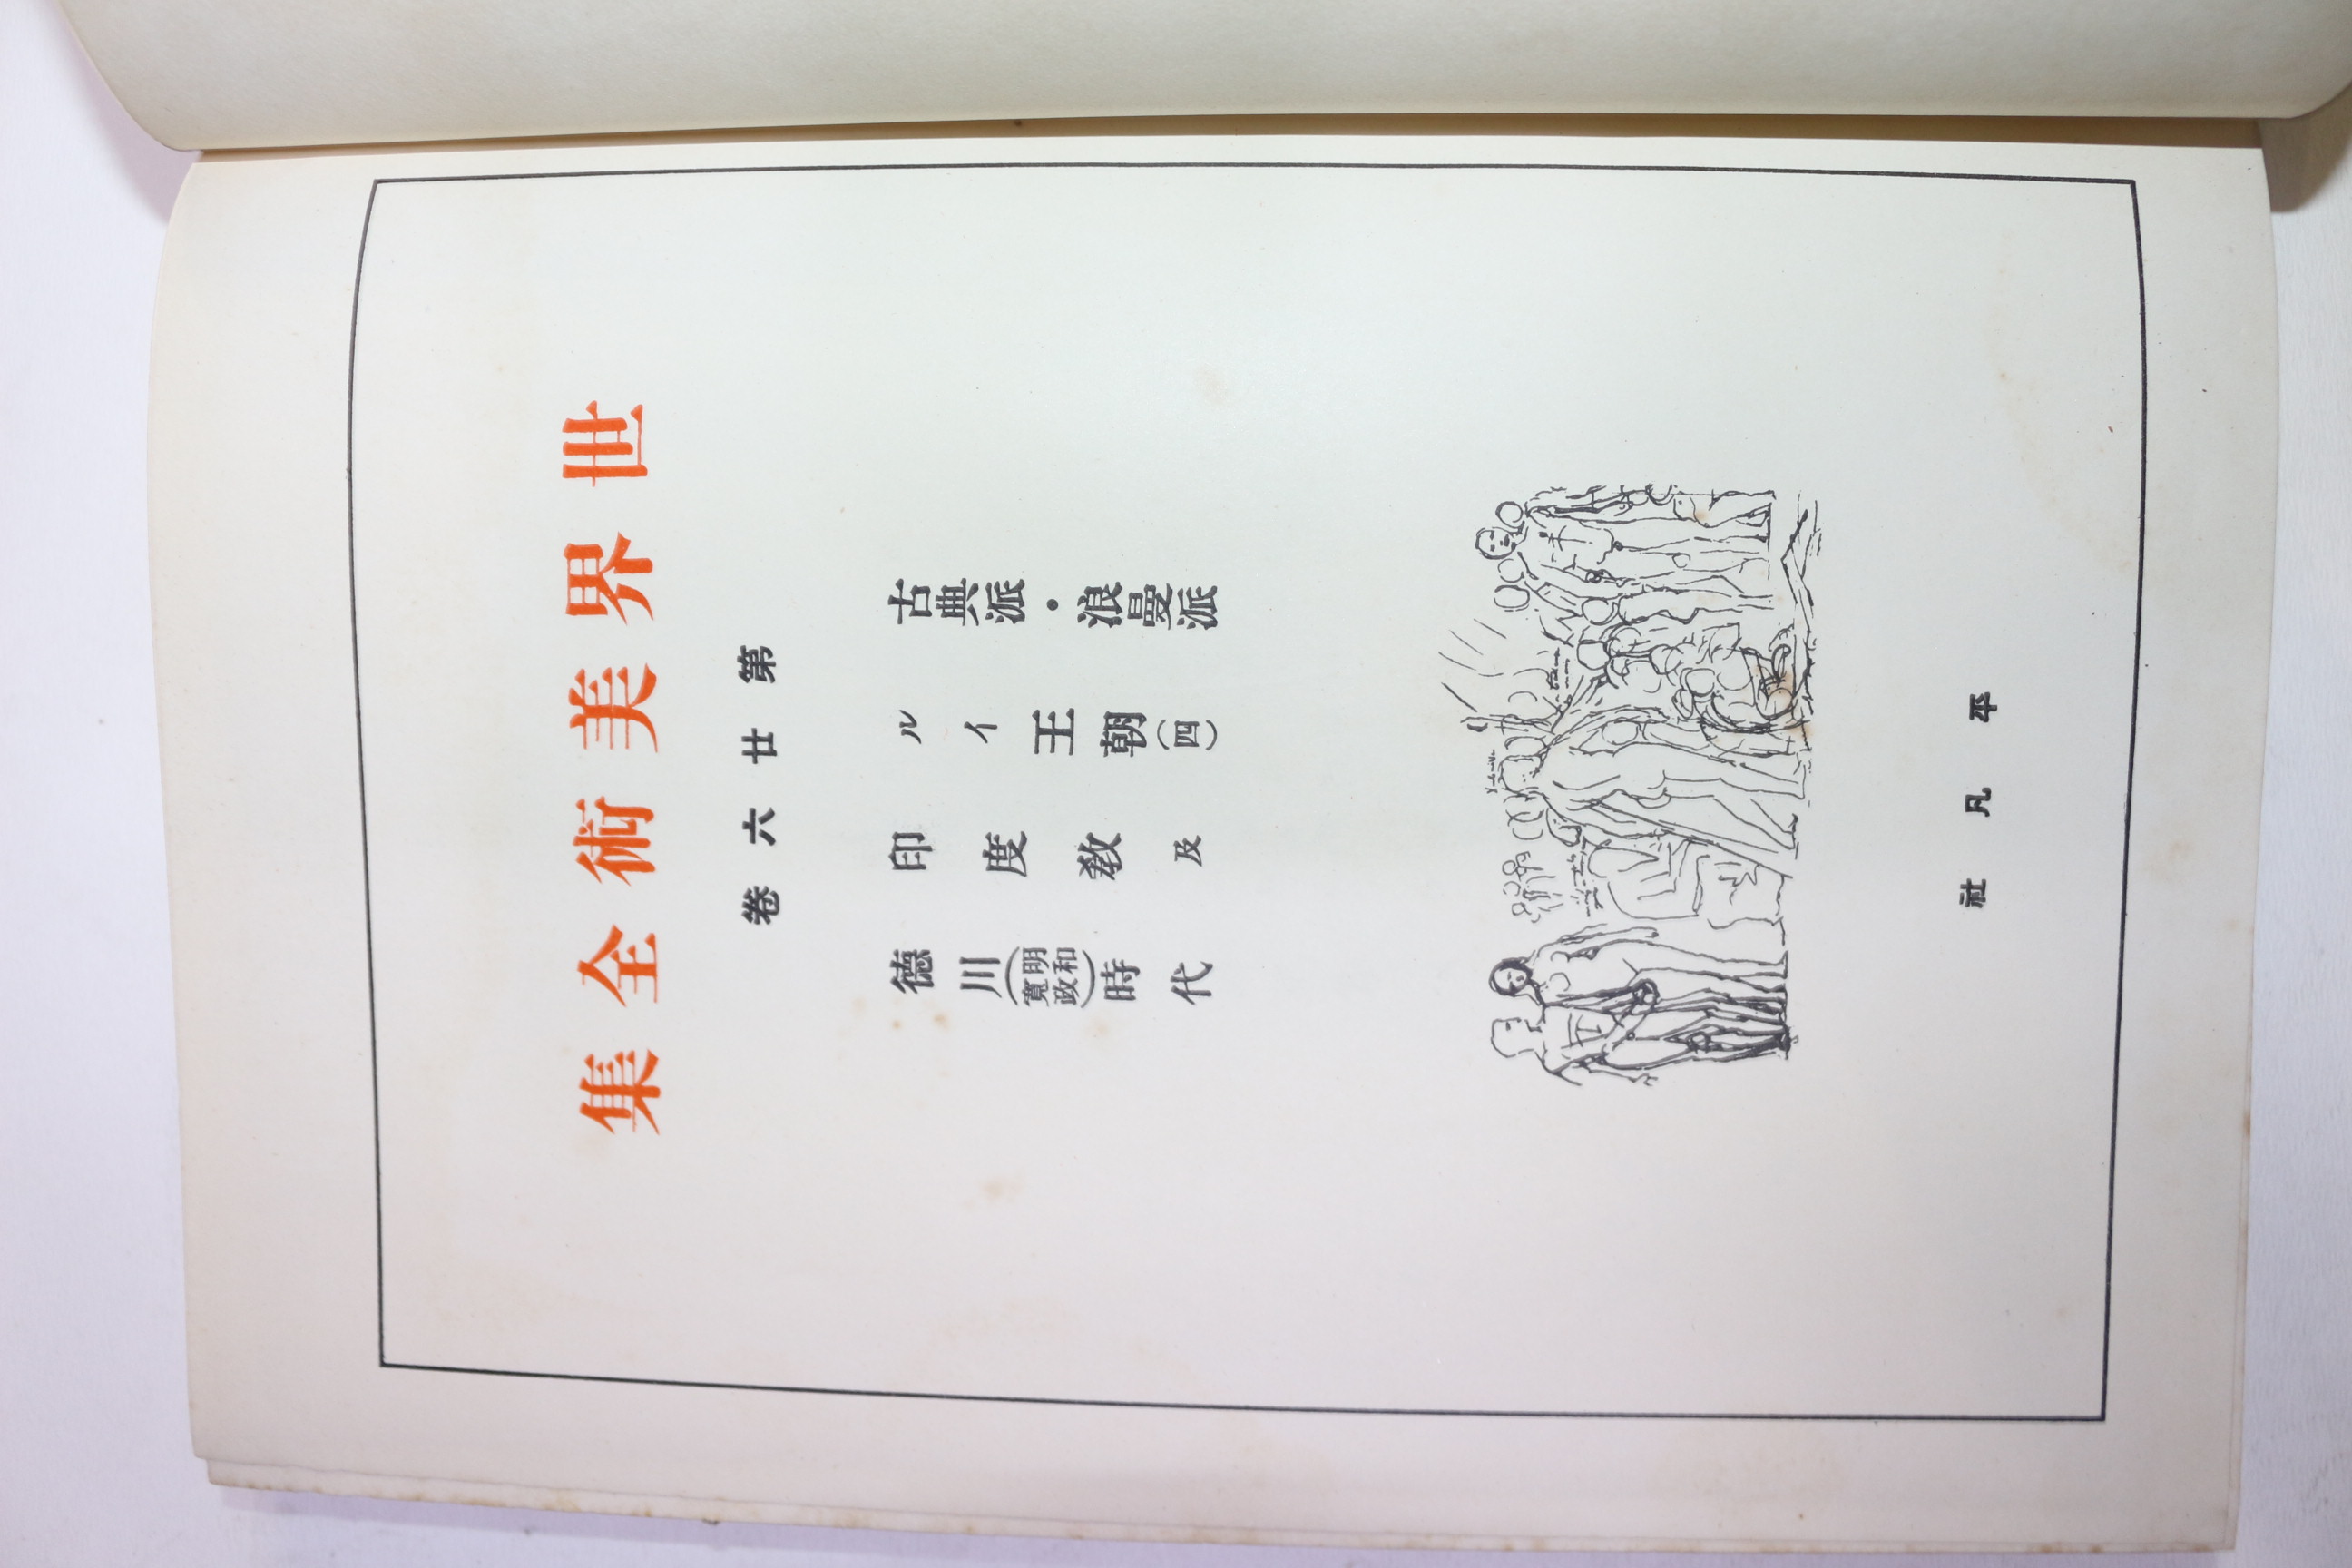 世界美術全集
第廿六卷
古典派・浪曼派
ルイ王朝(四)
印度敎及
德川(明和寬政)時代
平凡社